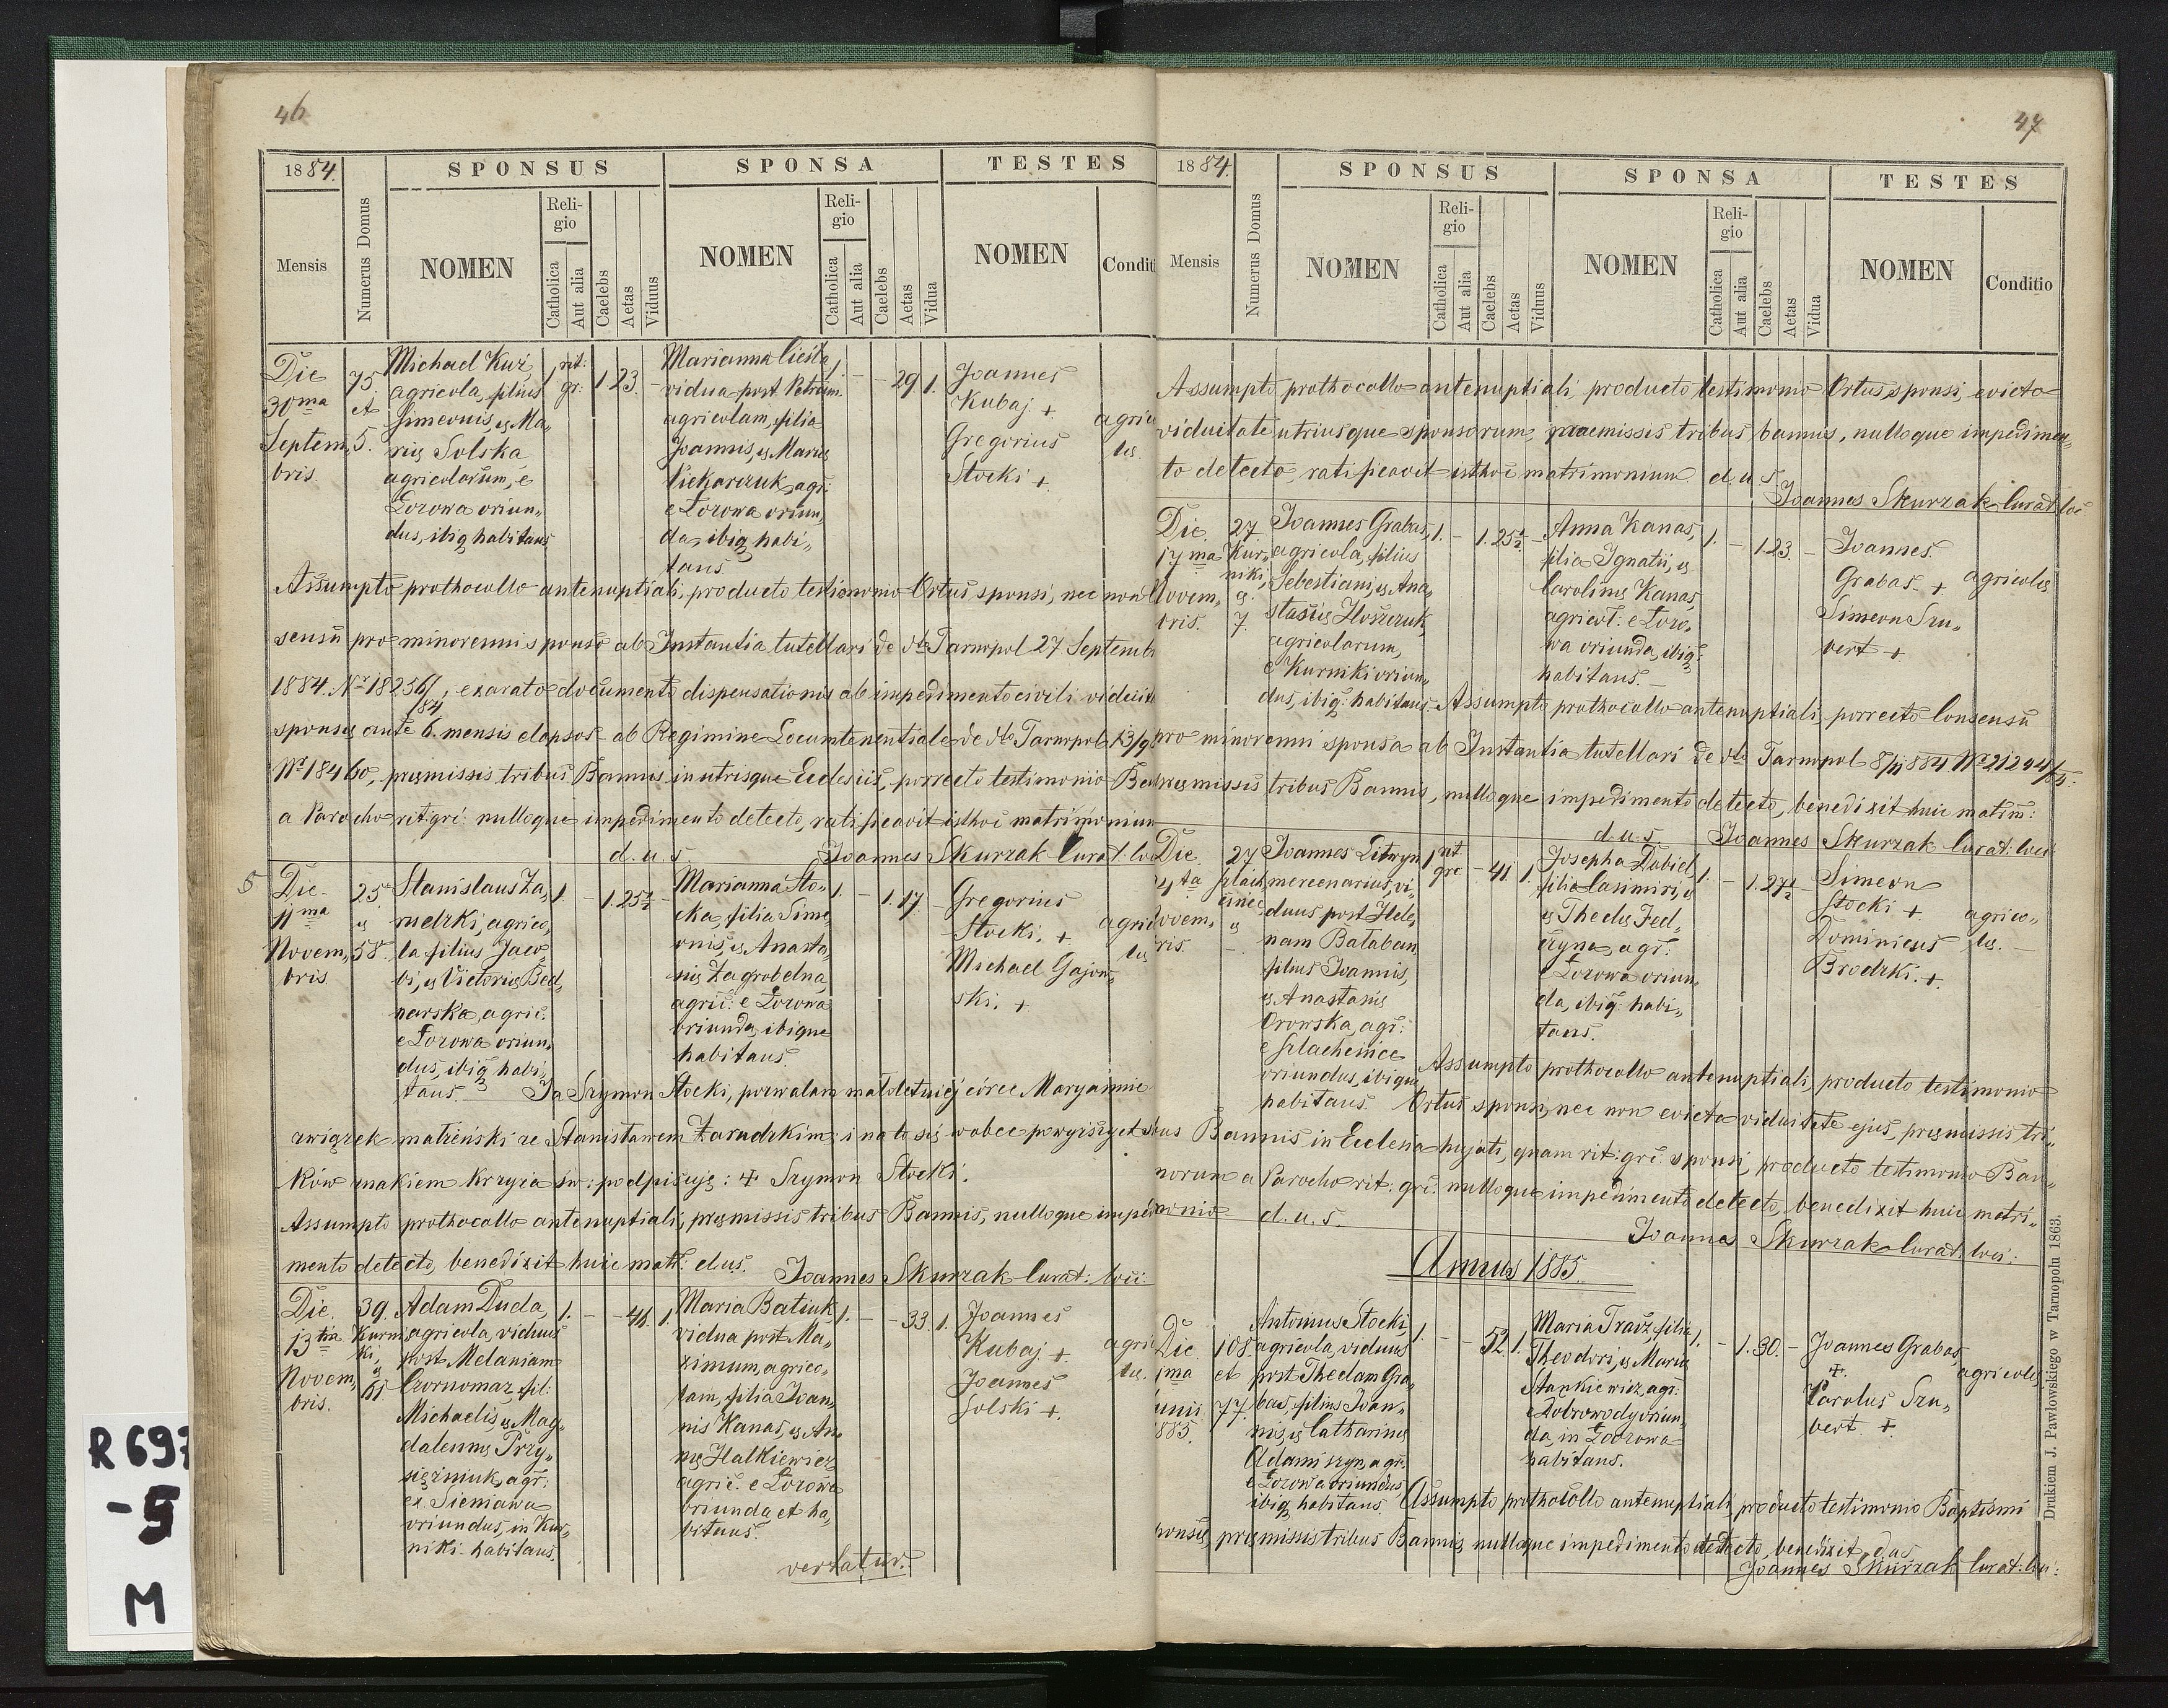 46
1884.
SPONSUS
SPONSA
TESTES
Mensis
Numerus Domus
NOMEN
Reli-
gio
Catholica
Aut alia
Caelebs
Aetas
Viduus
NOMEN
Reli-
gio
Catholica
Aut alia
Caelebs
Aetas
Vidua
NOMEN
Conditi
Die
30ma
Septem„
bris.
75.
et
5.
Michael Kuź
agricola, filius
Simeonis, & Ma„
rię Solska
agricolarum, e
Łozowa oriun„
dus, ibiq habitans
1 rit:
gr:
1.
23.
–
Marianna Cieśla
vidua post Petrum
agricolam, filia
Joannis, & Marię
Piekarczuk, agr:
e Łozowa oriun„
da, ibiq habi„
tans
1.
–
–
29.
1.
Joannes
Kubaj +
Gregorius
Stocki +
agrico
lę.
Assumpto prothocollo antenuptiali, producto testimonio Ortus sponsi, nec non C
sensu pro minorenni sponso ab Instantia tutellari de dto Tarnopol 27 Septemb
1884. Nr 18256/84, exarato documento dispensationis ab impedimento civili viduit
sponsę ante 6. mensis elapsos ab Regimine Locumtenentiale de dto Tarnopol 13/9
Nr 18460, pręmissis tribus Bannis in utrisque Ecclesiis, porrecto testimonio Ba
a Parocho rit: gr: nulloque impedimento detecto, ratificavit isthoc matrimonium
d. u. s. Joannes Skurzak Curat: loci
5
Die
11ma
Novem„
bris
25.
&
58.
Stanislaus Za„
rudzki, agrico„
la, filius Jaco„
bi, & Victorię Bed„
narska, agric:
e Łozowa oriun„
dus, ibiq habi„
tans.
1.
–
1.
25½
–
Marianna Sto„
cka, filia Sime„
onis, & Anasta„
się Zagrobelna,
agric: e Łozowa
oriunda, ibique
habitans.
1.
–
1.
17.
–
Gregorius
Stocki. +
Michael Gajow„
ski. +
agrico
lę
Ja Szymon Stocki, pozwalam małoletniej córce Maryannie
związek małżeński ze Stanisławem Zarudzkim i na to się wobec powyższych
ków znakiem krzyża św: podpisuję: + Szymon Stocki.
Assumpto prothocollo antenuptiali, pręmissis tribus Bannis, nulloque impedi
mento detecto, benedixit huic matr: dus. Joannes Skurzak Curat: loci:
Die
13tia
Novem„
bris.
39.
Kurni„
ki,
&
61
Adam Duda,
agricola, viduus
post Melaniam
Czornomaz, fil:
Michaelis, & Mag„
dalenę Przy„
siężniuk, agr:
ex Sieniawa
oriundus, in Kur„
niki habitans.
1.
–
–
46.
1.
Maria Batiuk
vidua post Ma„
ximum, agrico„
lam, filia Joan„
nis Kanas, & An„
nę Halkiewicz
agric: e Łozowa
oriunda et ha„
bitans.
1.
–
–
33.
1.
Joannes
Kubaj. +
Joannes
Solski +.
agrico
lę.
vertatur.
47
1884.
SPONSUS
SPONSA
TESTES
Mensis
Numerus Domus
NOMEN
Reli-
gio
Catholica
Aut alia
Caelebs
Aetas
Viduus
NOMEN
Reli-
gio
Catholica
Aut alia
Caelebs
Aetas
Vidua
NOMEN
Conditio
Assumpto prothocollo antenuptiali, producto testimonio Ortus sponsi, evicto
viduitate utriusque sponsorum, praemissis tribus bannis, nulloque impedimen„
to detecto, ratificavit isthoc matrimonium d. u. s.
Joannes Skurzak Curat: loc
Die
17ma
Novem„
bris.
27.
Kur„
niki,
&
7.
Joannes Grabas,
agricola, filius
Sebestiani, & Ana„
stasię Hoszczuk,
agricolarum,
e Kurniki oriun„
dus, ibiq: habitans.
1.
–
1.
25½
–
Anna Kanas,
filia Ignatii, &
Carolinę Kanas,
agricol: e Łozo„
wa oriunda, ibiq:
habitans. –
1.
–
1.
23.
–
Joannes
Grabas. +
Simeon Szu„
bert +
agricolę
Assumpto prothocollo antenuptiali, porrecto Consensu
pro minorenni sponsa ab Instantia tutellari de dto Tarnopol 8/11 884 Nr 21244/84.
pręmissis tribus Bannis, nulloque impedimento detecto, benedixit huic matrim:
d. u. s. Joannes Skurzak Curat: loci
Die
24ta
Novem„
ris.
27
Szlach
cinec
&
–
Joannes Litwyn
mercenarius, vi„
duus post Hele„
nam Bałaban,
filius Joannis,
& Anastasię
Orowska, agr:
e Szlachcince
oriundus, ibique
habitans.
1 rit
gre
–
41.
1.
Josepha Dubiel
filia Casimiri, &
& Theclę Fed„
czyna, agr:
e Łozowa oriun„
da, ibiq: habi„
tans.
1.
–
1.
27½
–
Simeon
Stocki +.
Dominicus
Brodzki. +.
agrico„
lę. –
Assumpto prothocollo antenuptiali, producto testimonio
Ortus sponsi, nec non evicta viduitate ejus, pręmissis tri„
bus Bannis in Ecclesia hujati, quam rit: grc: sponsi, producto testimonio Ban„
norum a Parocho rit: grc: nulloque impedimento detecto, benedixit huic matri„
monio d. u. s.
Joannes Skurzak Curat: loci:
Annus 1885.
Die
1ma
Junii
1885.
108.
et
77.
Antonius Stocki,
agricola, viduus
post Theclam Gra„
bas, filius Joan„
nis, & Catharinę
Adamiszyn, agr:
e Łozowa oriundus,
ibiq habitans.
1.
–
–
52.
1.
Maria Tracz, filia
Theodori, & Maria
Stankiewicz, agr:
e Dobrowody oriun„
da, in Łozowa
habitans.
1.
–
1.
30.
–
Joannes Grabas
+.
Carolus Szu„
bert +
agricolę
Assumpto prothocollo antenuptiali, producto testimonio Baptismi
sponsę, pręmissis tribus Bannis, nulloque impedimento detecto, benedixit dus
Joannes Skurzak Curat: loci:
Drukiem J. Pawłowskiego w Tarnopolu 1863.
R 697
-5
M